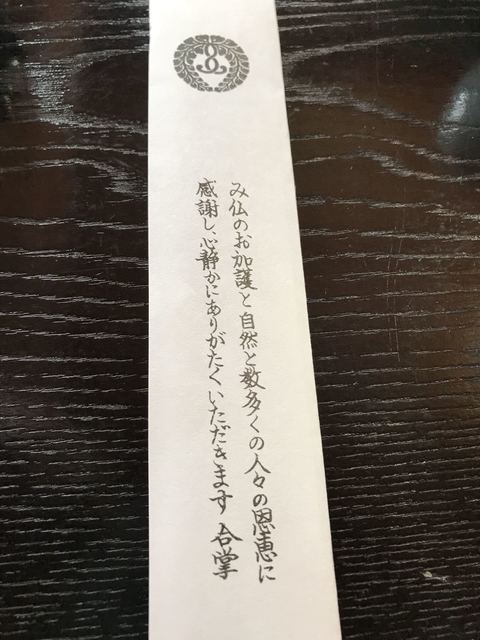 み仏のお加護と自然と数多くの人々の恩恵に
感謝し、心静かにありがたくいただきます 合掌